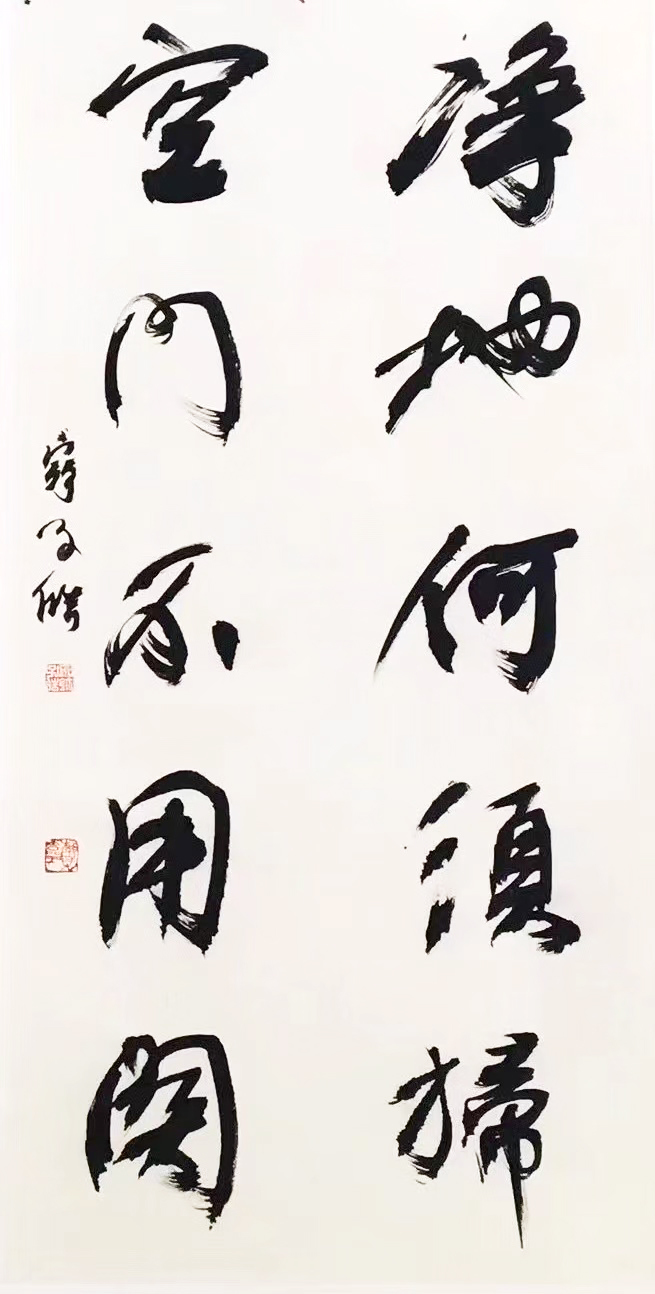 淨地何須掃
空門不用関